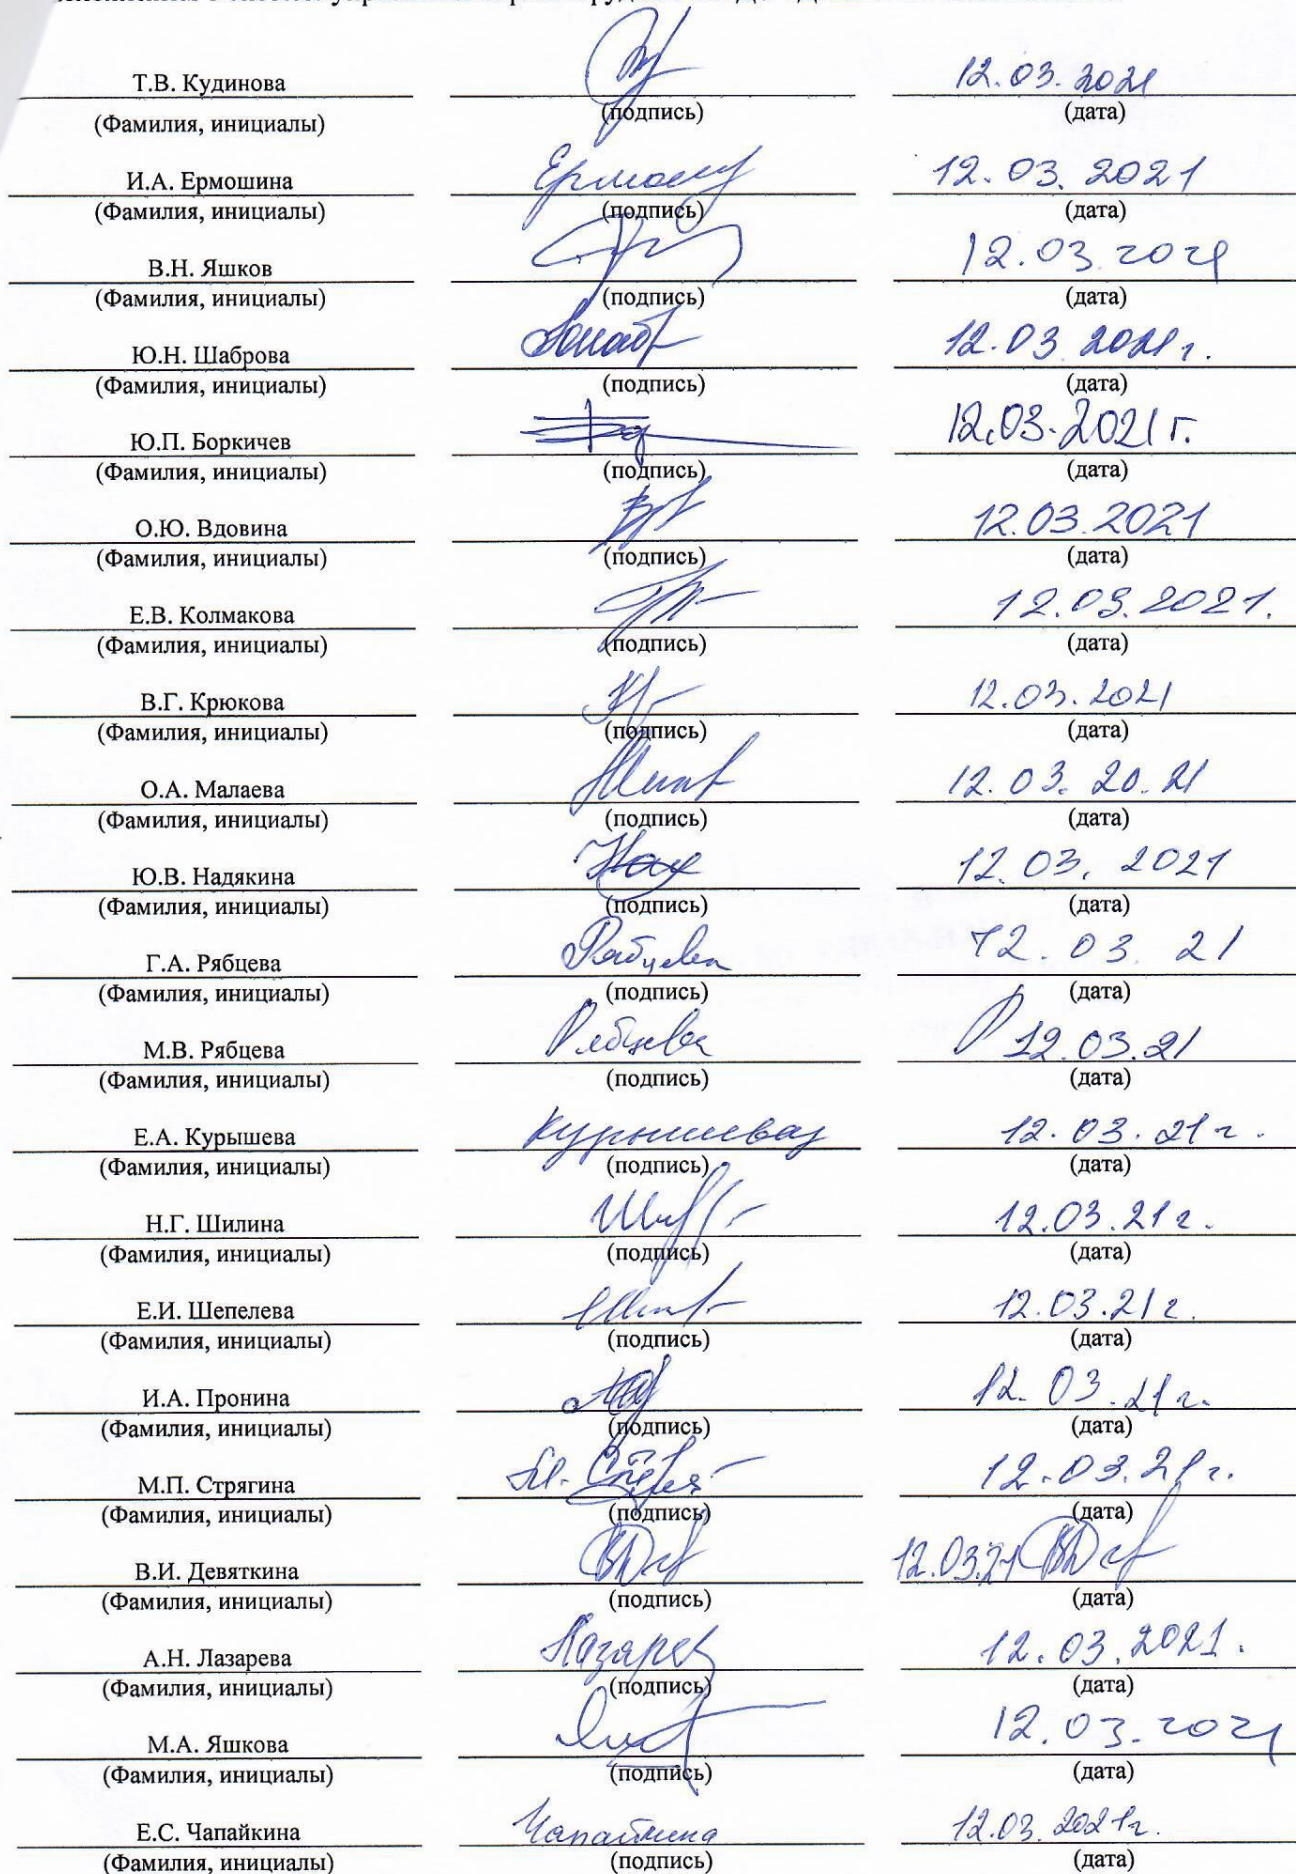 Т.В. Кудинова 12.03.2021
(Фамилия, инициалы) (подпись) (дата)
И.А. Ермошина 12.03.2021
(Фамилия, инициалы) (подпись) (дата)
В.Н. Яшков 12.03.2021
(Фамилия, инициалы) (подпись) (дата)
Ю.Н. Шаброва 12.03.2021г.
(Фамилия, инициалы) (подпись) (дата)
Ю.П. Боркичев 12.03.2021г.
(Фамилия, инициалы) (подпись) (дата)
О.Ю. Вдовина 12.03.2021
(Фамилия, инициалы) (подпись) (дата)
Е.В. Колмакова 12.03.2021.
(Фамилия, инициалы) (подпись) (дата)
В.Г. Крюкова 12.03.2021
(Фамилия, инициалы) (подпись) (дата)
О.А. Малаева 12.03.20.21
(Фамилия, инициалы) (подпись) (дата)
Ю.В. Надякина 12.03.2021
(Фамилия, инициалы) (подпись) (дата)
Г.А. Рябцева Рябцева 12.03.21
(Фамилия, инициалы) (подпись) (дата)
М.В. Рябцева Рябцева 12.03.21
(Фамилия, инициалы) (подпись) (дата)
Е.А. Курышева Курышева 12.03.21г.
(Фамилия, инициалы) (подпись) (дата)
Н.Г. Шилина 12.03.21г.
(Фамилия, инициалы) (подпись) (дата)
Е.И. Шепелева 12.03.21г.
(Фамилия, инициалы) (подпись) (дата)
И.А. Пронина 12.03.21г.
(Фамилия, инициалы) (подпись) (дата)
М.П. Стрягина 12.03.21г.
(Фамилия, инициалы) (подпись) (дата)
В.И. Девяткина 12.03.21
(Фамилия, инициалы) (подпись) (дата)
А.Н. Лазарева Лазарев 12.03.2021.
(Фамилия, инициалы) (подпись) (дата)
М.А. Яшкова 12.03.2021
(Фамилия, инициалы) (подпись) (дата)
Е.С. Чапайкина Чапайкина 12.03.2021г.
(Фамилия, инициалы) (подпись) (дата)